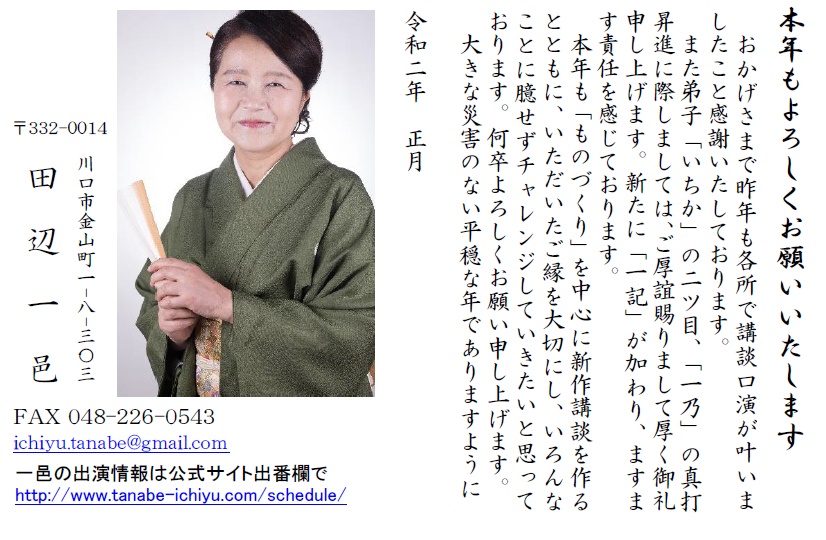 本年もよろしくお願いいたします
おかげさまで昨年も各所で講談口演が叶いま
したこと感謝いたしております。
また弟子「いちか」の二ツ目、「一乃」の真打
昇進に際しましては、ご厚誼賜りまして厚く御礼
申し上げます。新たに「一記」が加わり、ますま
す責任を感じております。
本年も「ものづくり」を中心に新作講談を作る
とともに、いただいたご縁を大切にし、いろんな
ことに臆せずチャレンジしていきたいと思って
おります。何卒よろしくお願い申し上げます。
大きな災害のない平穏な年でありますように
令和二年 正月
〒332-0014
川口市金山町一－八－三〇三
田辺一邑
FAX 048-226-0543
ichiyu.tanabe@gmail.com
一邑の出演情報は公式サイト出番欄で
http://www.tanabe-ichiyu.com/schedule/